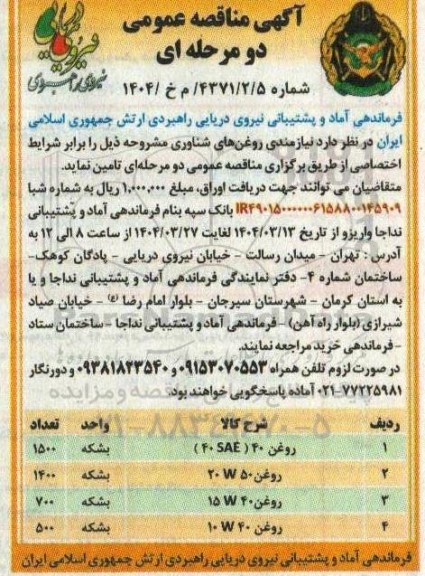 آگهی مناقصه عمومی
دو مرحله ای
شماره ۴۳۷۱/۲/۵/ م خ /۱۴۰۴
نیروی راهبردی
فرماندهی آماد و پشتیبانی نیروی دریایی راهبردی ارتش جمهوری اسلامی
ایران در نظر دارد نیازمندی روغن‌های شناوری مشروحه ذیل را برابر شرایط
اختصاصی از طریق برگزاری مناقصه عمومی دو مرحله‌ای تامین نماید.
متقاضیان می توانند جهت دریافت اوراق، مبلغ ۱,۰۰۰,۰۰۰ ریال به شماره شبا
IR۴۹۰۱۵۰۰۰۰۰۰۶۱۵۸۸۰۰۱۴۵۹۰۹ بانک سپه بنام فرماندهی آماد و پشتیبانی
نداجا واریز و از تاریخ ۱۴۰۴/۰۳/۱۳ لغایت ۱۴۰۴/۰۳/۲۷ از ساعت ۸ الی ۱۲ به
آدرس : تهران - میدان رسالت - خیابان نیروی دریایی - پادگان کوهک-
ساختمان شماره ۴- دفتر نمایندگی فرماندهی آماد و پشتیبانی نداجا و یا
به استان کرمان - شهرستان سیرجان - بلوار امام رضا (ع) - خیابان صیاد
شیرازی (بلوار راه آهن) - فرماندهی آماد و پشتیبانی نداجا -ساختمان ستاد
-فرماندهی خرید مراجعه نمایند.
در صورت لزوم تلفن همراه ۰۹۱۵۳۰۷۰۵۵۳ و ۰۹۳۸۱۸۲۳۵۴۰ و دورنگار
۰۲۱-۷۷۲۲۵۹۸۱ آماده پاسخگویی خواهند بود.
ردیف شرح کالا واحد تعداد
۱ روغن ۴۰ ( ۴۰ SAE ) بشکه ۱۵۰۰
۲ روغن ۵۰ ۲۰ W بشکه ۱۴۰۰
۳ روغن ۴۰ ۱۵ W بشکه ۷۰۰
۴ روغن ۴۰ ۱۰ W بشکه ۵۰۰
فرماندهی آماد و پشتیبانی نیروی دریایی راهبردی ارتش جمهوری اسلامی ایران